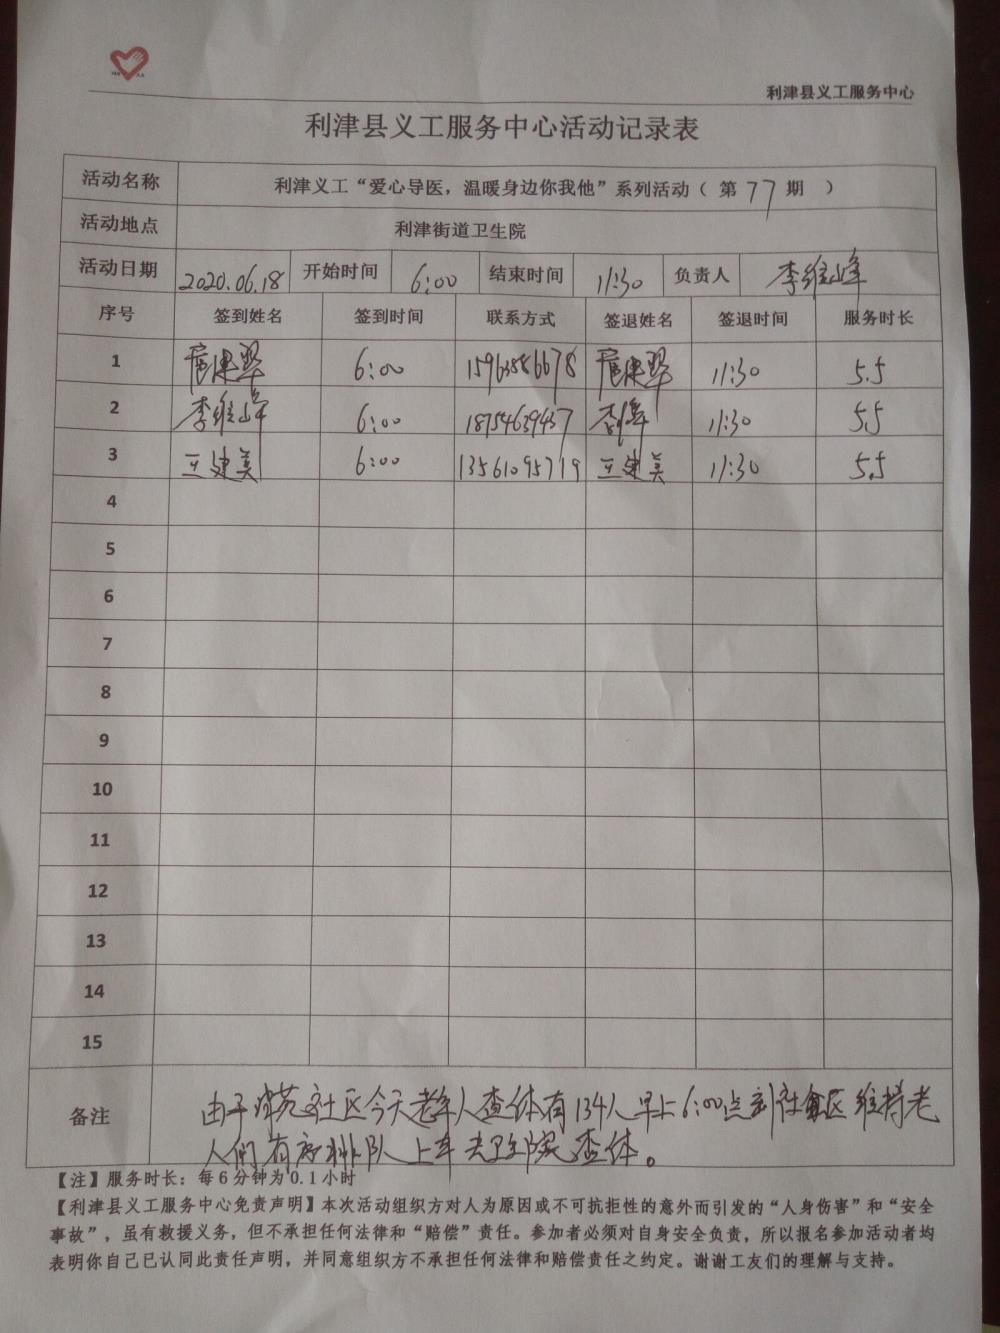 利津县义工服务中心
利津县义工服务中心活动记录表
活动名称 利津义工“爱心导医，温暖身边你我他”系列活动（ 第 77 期 ）
活动地点 利津街道卫生院
活动日期 2020.06.18 开始时间 6:00 结束时间 11:30 负责人 李维峰
序号 签到姓名 签到时间 联系方式 签退姓名 签退时间 服务时长
1 6:00 15963886678 11:30 5.5
2 李维峰 6:00 18754639437 11:30 5.5
3 王建美 6:00 13561095719 王建美 11:30 5.5
4
5
6
7
8
9
10
11
12
13
14
15
备注 由于 社区今天老年人查体有134人早上6:00点到社区维持老
人们有序排队上车去卫生院查体。
【注】服务时长：每6分钟为0.1小时
【利津县义工服务中心免责声明】本次活动组织方对人为原因或不可抗拒性的意外而引发的“人身伤害”和“安全
事故”，虽有救援义务，但不承担任何法律和“赔偿”责任。参加者必须对自身安全负责，所以报名参加活动者均
表明你自己已认同此责任声明，并同意组织方不承担任何法律和赔偿责任之约定。谢谢工友们的理解与支持。